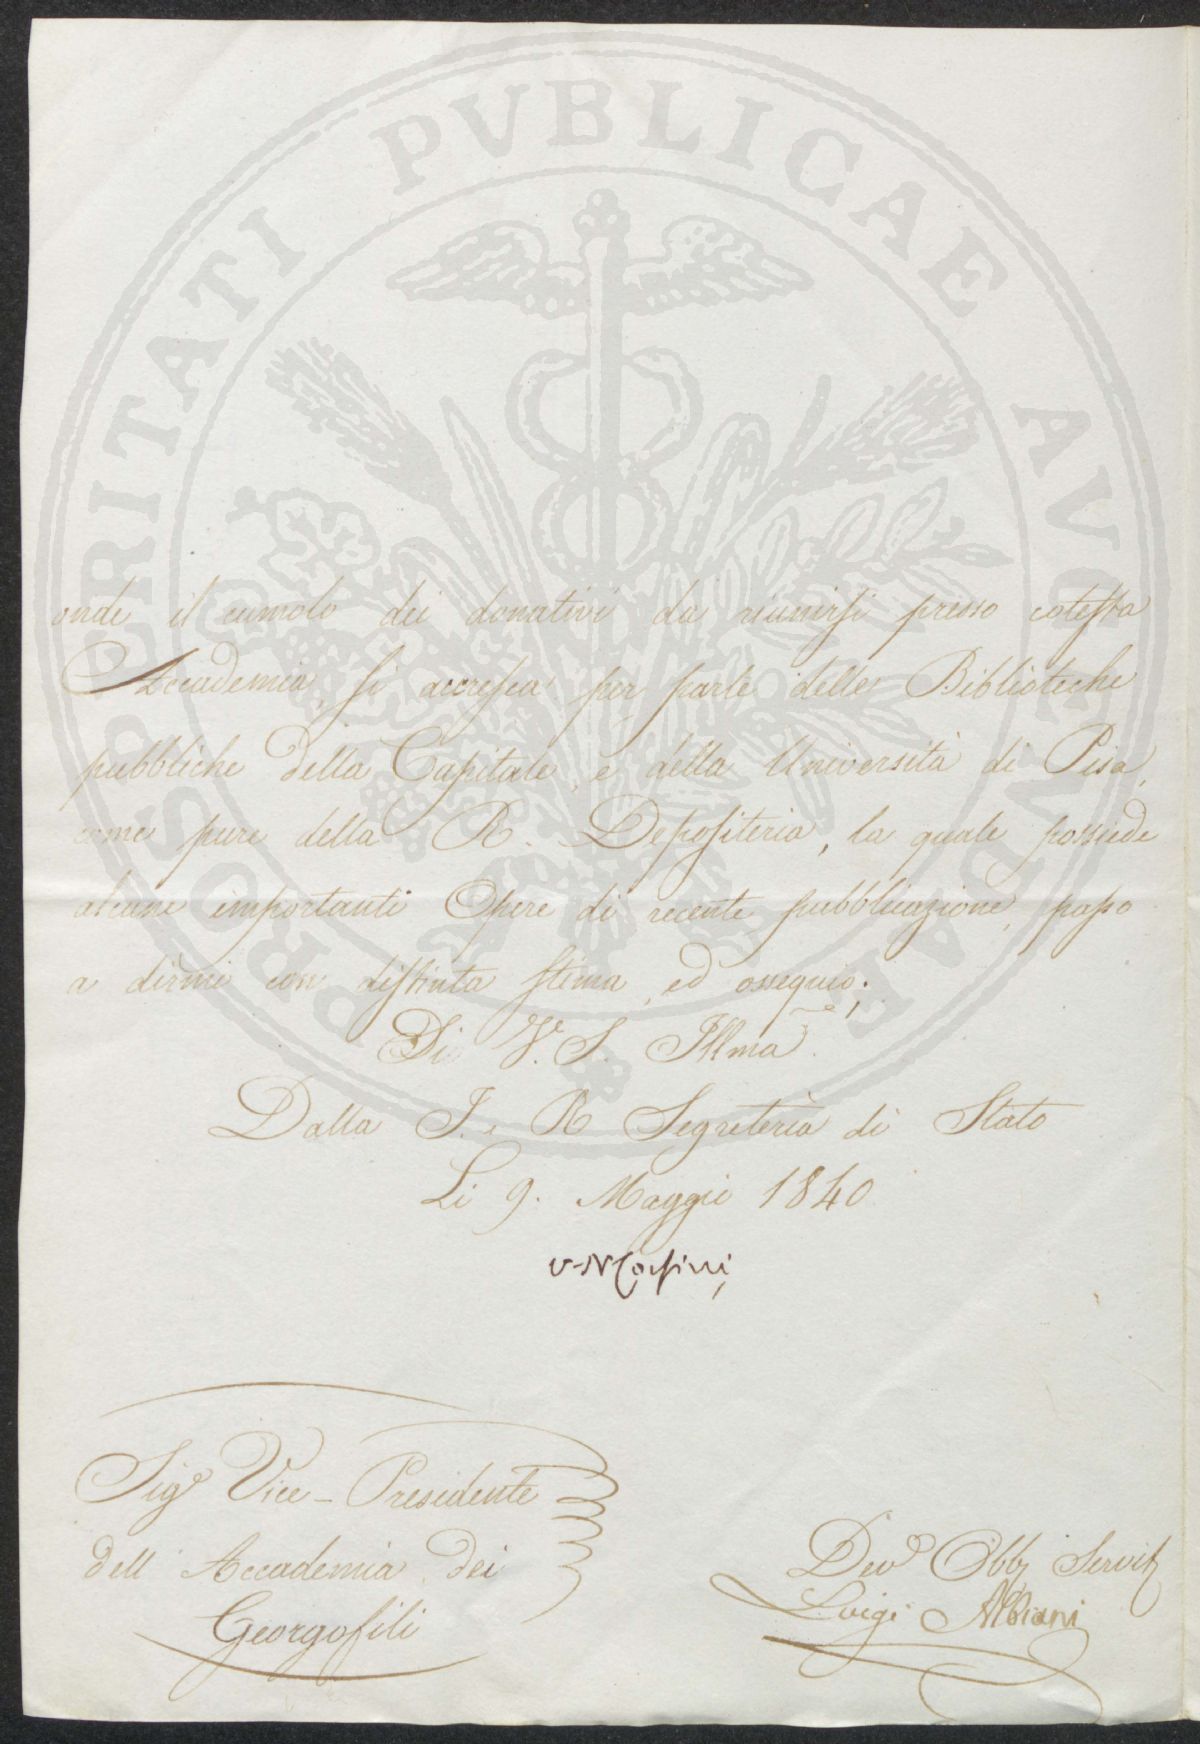 PROSPERITATI PVBLICAE AVGENDAE
onde il cumolo dei donativi da riunirsi presso cotesta
Accademia, si accresca per parte delle Biblioteche
pubbliche della Capitale, e della Università di Pisa,
come pure della R. Depositeria, la quale possiede
alcune importanti Opere di recente pubblicazione, passo
a dirmi con distinta stima, ed ossequio.
Di V. S. Illma
Dalla I. e R. Segreteria di Stato
Li 9. Maggio 1840
V. N Corsini
Sigr Vice-Presidente
dell'Accademia dei
Georgofili
Devo Obb Servit
Luigi Albiani